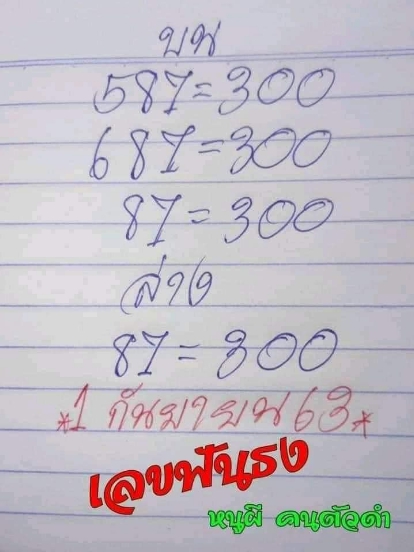 บน
587=300
687=300
87=300
ล่าง
87=300
*1 กันยายน 63*
เลขฟันธง
หนูผี คนตัวดำ